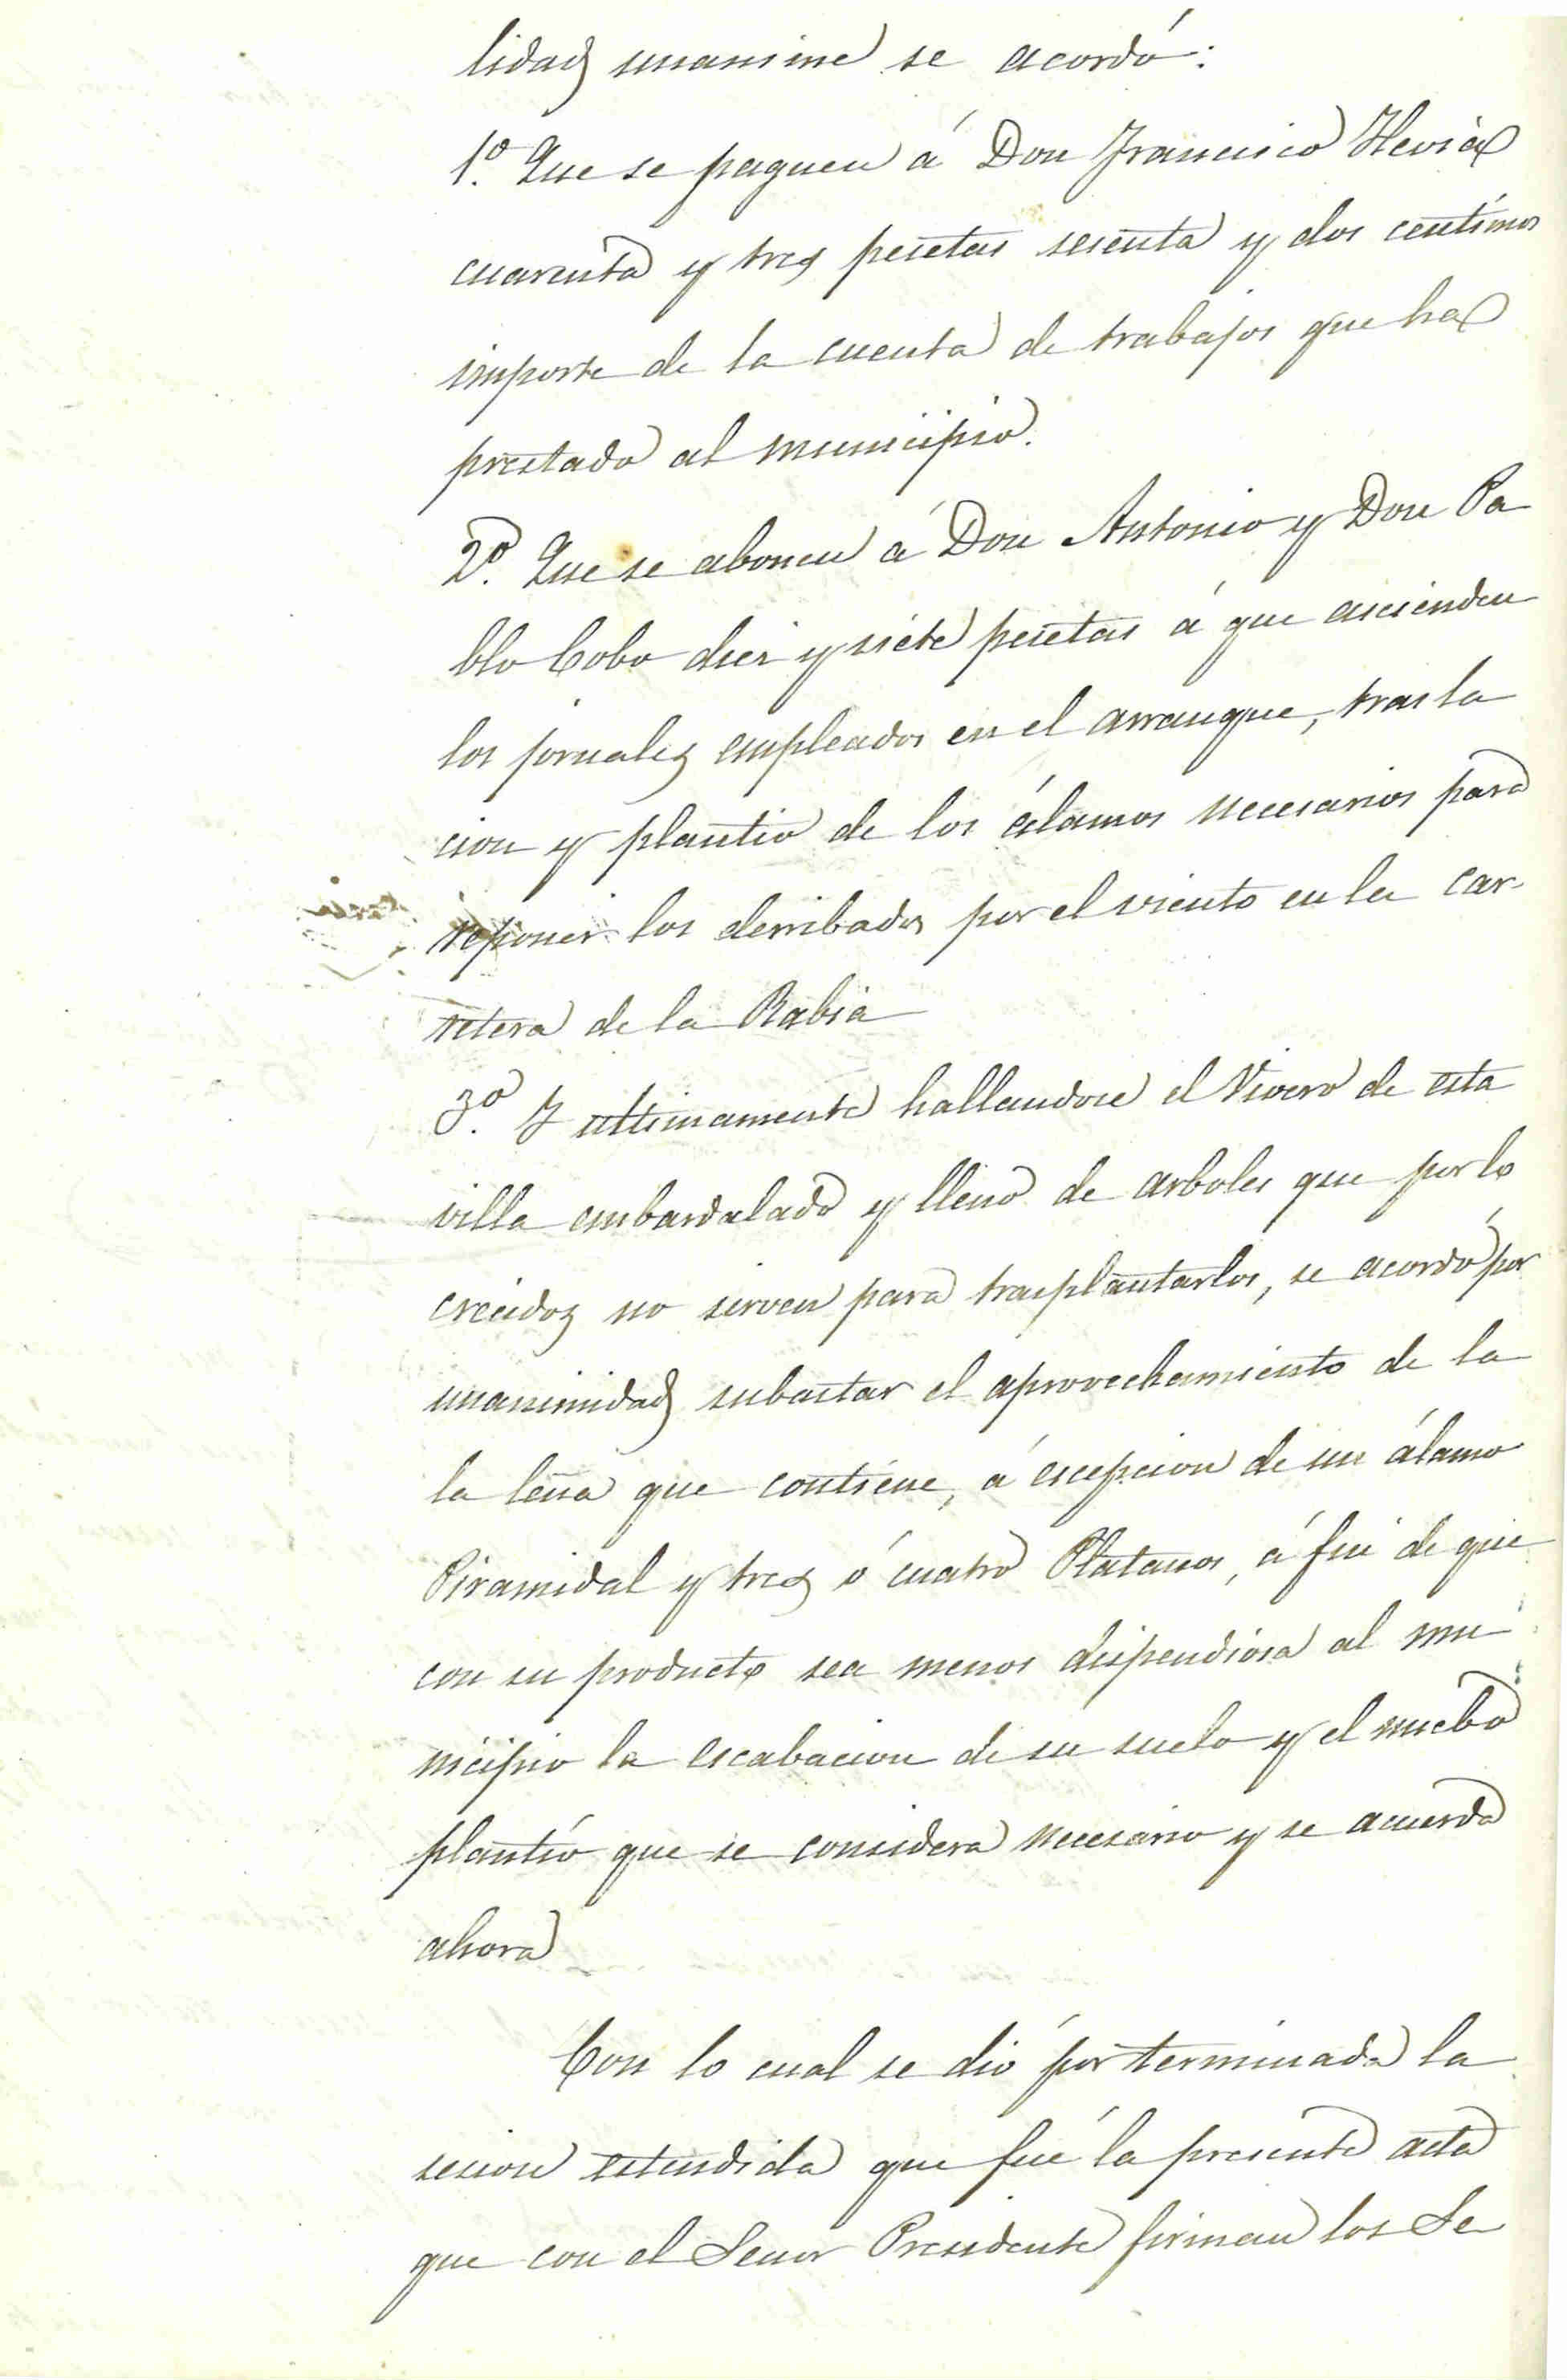 lidad unanime se acordó:
1º. Que se paguen á Don Francisco Hevia
cuarenta y tres pesetas sesenta y dos centimos
importe de la cuenta de trabajos que ha
prestado al municipio.
2º. Que se abonen á Don Antonio y Don Pa
blo Cobo diez y siete pesetas á que ascienden
los jornales empleados en el arranque, trasla
cion y plantio de los álamos necesarios para
reponer los derribados por el viento en la car-
retera de la Rabia
3º. Y ultimamente hallandose el Vivero de esta
villa embardalado y lleno de arboles que por lo
crecidos no sirven para trasplantarlos, se acordó por
unanimidad subastar el aprovechamiento de la
la leña que contiene, á escepcion de un álamo
Piramidal y tres ó cuatro Platanos, á fin de que
con su producto sea menos dispendiosa al mu
nicipio la escabacion de su suelo y el nuebo
plantío que se considera necesario y se acuerda
ahora
Con lo cual se dió por terminada la
sesion estendida que fué la presente acta
que con el Señor Presidente firman los Se